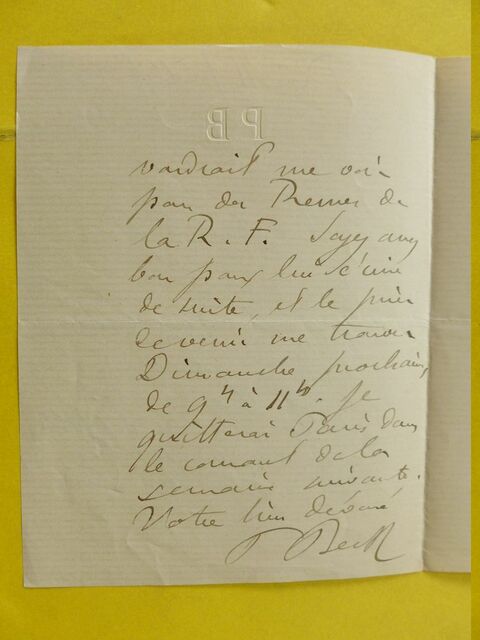 P B
voudrait me voir
pour des Primes de
la R. F. Soyez assez
bon pour lui écrire
de suite, et le prier
de venir me trouver
Dimanche prochain,
de 9h à 11h. Je
quitterai Paris dans
le courant de la
semaine suivante.
Votre bien dévoué